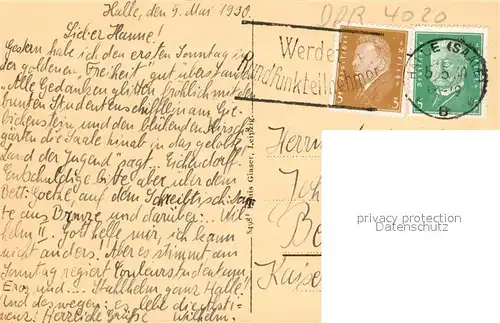 Halle, den 5. Mai 1930.
Lieber Hanne!
Gestern habe ich den ersten Sonntag in
der goldenen „Freiheit" gut überstanden.
„Alle Gedanken glitten fröhlich mit den
bunten Studentenschifflein am Gie-
bichenstein und den blühenden Kirsch-
gärten die Saale hinab in das gelobte
Land der Jugend" sagt Eichendorff.
Entschuldige bitte aber über dem
Bett: Goethe, auf dem Schreibtisch:
aus Bronze und darüber: Wil-
helm II. Gott helfe mir, ich kann
nicht anders. Aber es stimmt am
Sonntag regiert Couleurstudententum,
Eros und Stahlhelm ganz Halle!
Und deswegen: es lebe die
Herzliche Grüße Wilhelm.
Louis Glaser, Leipzig.
DDR 4020
Werde
Rundfunkteilnehmer
DEUTSCHES REICH
3 3
DEUTSCHES REICH
5
HALLE (SAALE)
Herrn
Joh
Be
Kaiser
privacy protection
Datenschutz